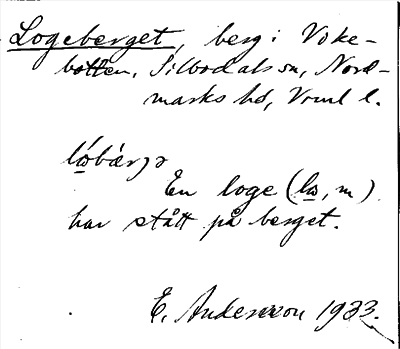 Logeberget, berg i Voke-
botten, Silbodals sn, Nord-
marks hd, Vrml l.
En loge (lω, m)
har stått på berget.
E. Andersson 1933.